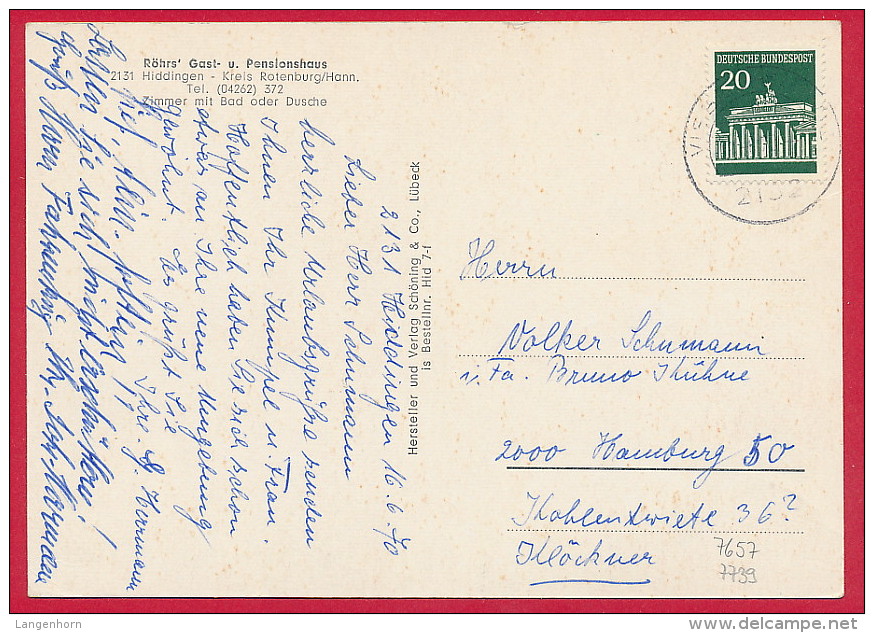 Röhrs' Gast- u. Pensionshaus
2131 Hiddingen - Kreis Rotenburg/Hann.
Tel. (04262) 372
Zimmer mit Bad oder Dusche
2131 Hiddingen 16.6.70
Lieber Herr Schumann
herrliche Urlaubsgrüße senden
Ihnen Ihr Kumpel u. Frau.
Hoffentlich haben Sie sich schon
etwas an Ihre neue Umgebung
gewöhnt. Es grüßt Sie
Ihre J. Herrmann
Lassen Sie sich nicht
Gruß Herrn
Hersteller und Verlag Schöning & Co., Lübeck
is Bestellnr. Hid 7-f
DEUTSCHE BUNDESPOST
20
2132
Herrn
Volker Schumann
i. Fa. Bruno Kühne
2000 Hamburg 50
Kohlentwiete 36?
Klöckner
7657
7739
Langenhorn
© delcampe.net